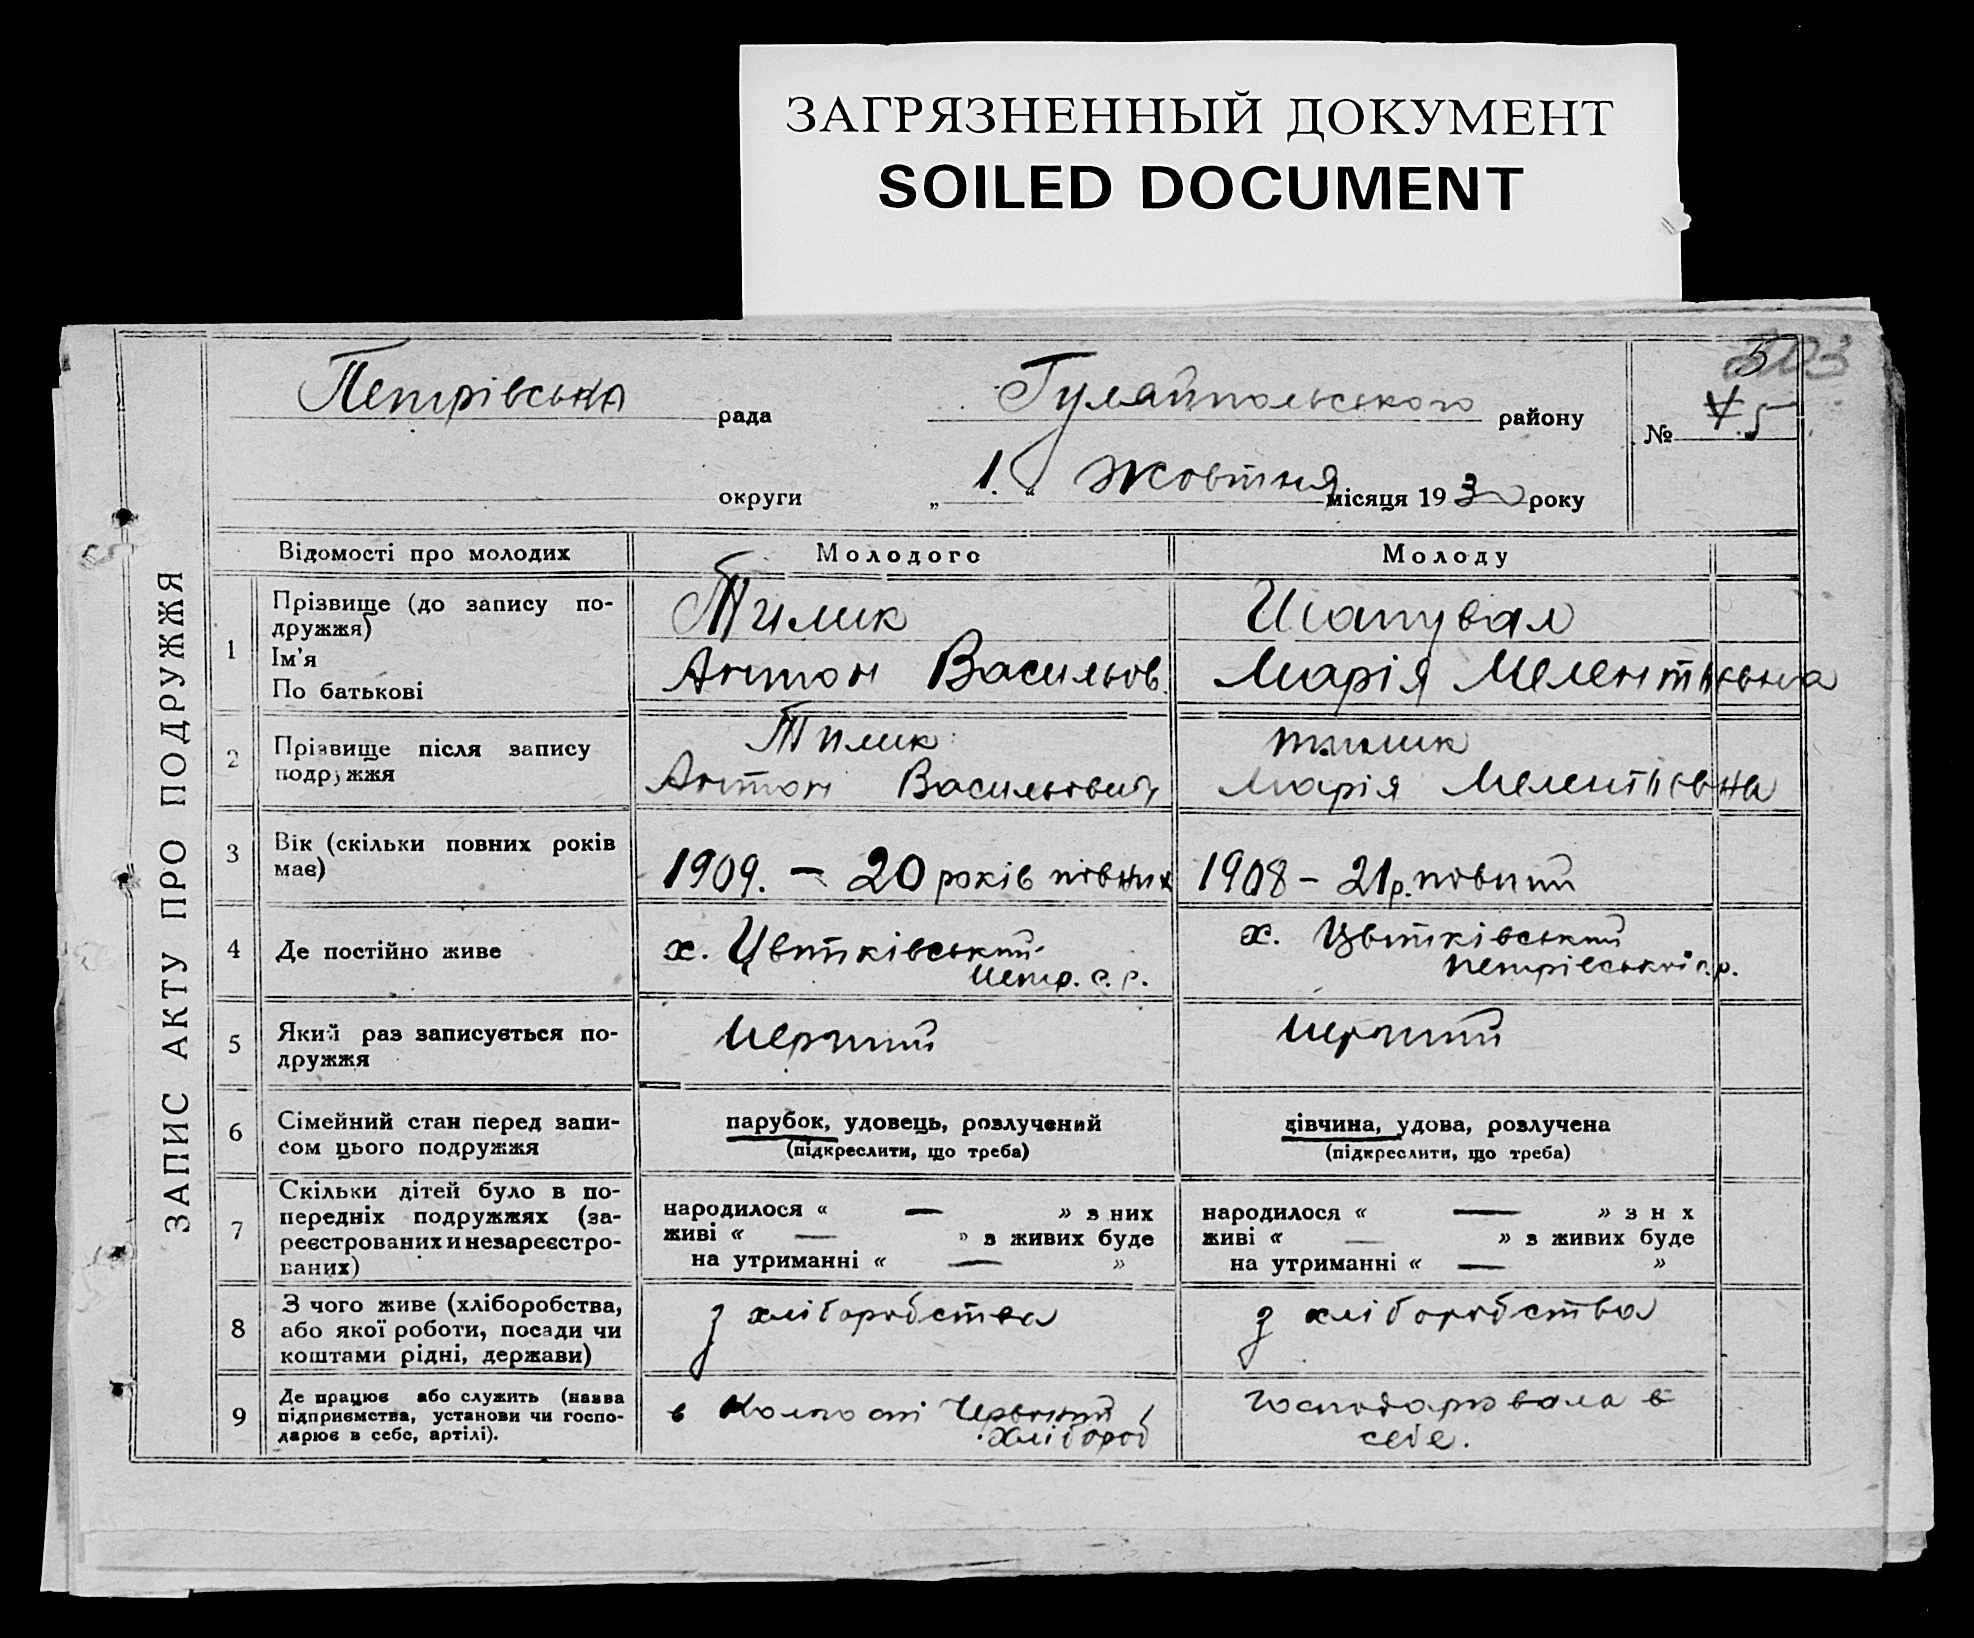 ЗАГРЯЗНЕННЫЙ ДОКУМЕНТ
SOILED DOCUMENT
ЗАПИС АКТУ ПРО ПОДРУЖЖЯ
Петрівська рада Гуляйпольського району
№ 5
округи „ 1. “ Жовтня місяця 1930 року
Відомості про молодих Молодого Молоду
1 Прізвище (до запису по-
дружжя)
Ім'я
По батькові
Тилик
Антон Васильов.
Шаповал
Марія Мелентіївна
2 Прізвище після запису
подружжя
Тилик
Антон Васильович
тилик
Марія Мелентіївна
3 Вік (скільки повних років
має)
1909. – 20 років повних
1908 – 21 р. повний
4 Де постійно живе
х. Цвітківський
Петр. с. р.
х. Цвітківський
петрівської с.р.
5 Який раз записується по-
дружжя
перший
перший
6 Сімейний стан перед запи-
сом цього подружжя
парубок, удовець, розлучений
(підкреслити, що треба)
дівчина, удова, розлучена
(підкреслити, що треба)
7 Скільки дітей було в по-
передніх подружжях (за-
реєстрованих и незареєстро-
ваних)
народилося « — » з них
живі « — » з живих буде
на утриманні « — »
народилося « — » з н х
живі « — » з живих буде
на утриманні « — »
8 З чого живе (хліборобства,
або якої роботи, посади чи
коштами рідні, держави)
з хліборобства
з хліборобства
9 Де працює або служить (назва
підприємства, установи чи госпо-
дарює в себе, артілі).
в Червоний
Хлібороб
господарювала в
себе.